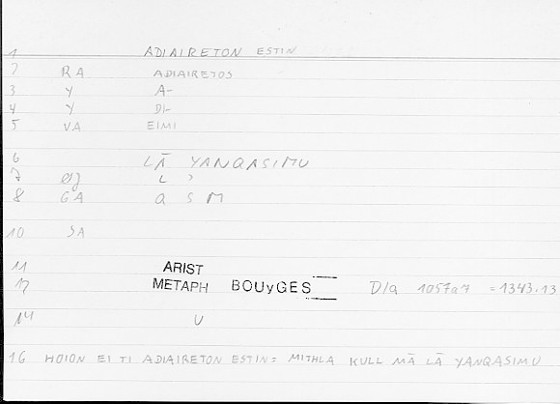 1 ADIAIRETON ESTIN
2 RA ADIAIRETOS
3 Y A-
4 Y DI-
5 VA EIMI
6 LĀ YANQASIMU
7 L ʾ
8 GA Q S M
10 SA
11 ARIST
12 METAPH BOUyGES D/a 1057a7 = 1343.13
14 U
16 HOION EI TI ADIAIRETON ESTIN = MITHLA KULL MĀ LĀ YANQASIMU